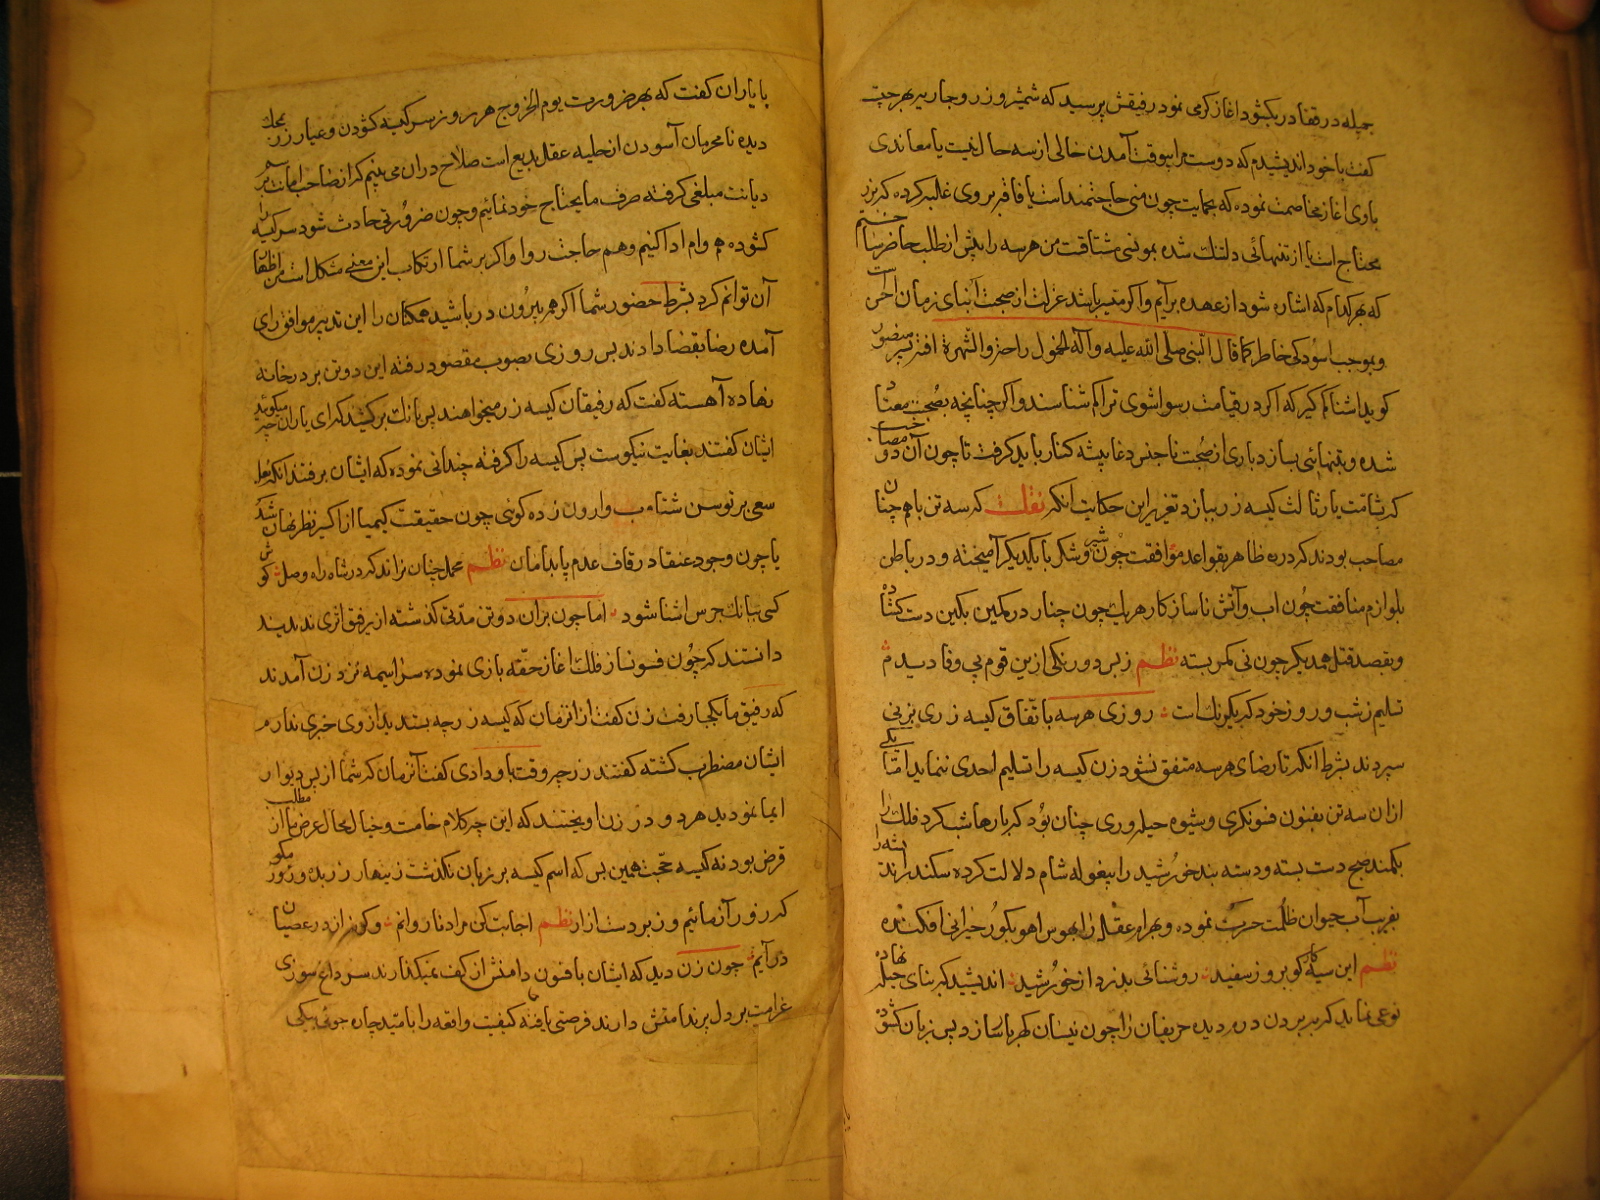 جمیله در قفا در بکشود اغاز کرمی نمود رفیقش پرسید که شمشیر و زر و جاریه بهر چیست
کفت با خود اندیشیدم که دوست مرا بیوقت آمدن خالی از سه حال نیست یا معاندی
باوی اغاز مخاصمت نموده که بحمایت چون منی حاجتمند است یا فاقه بر وی غلبه کرده که بزر
محتاج است یا از تنهائی دلتنك شده بمونسی مشتاقست من هر سه را پیش از طلب حاضر ساختم
که بهر کدام که اشاره شود از عهده برآیم و اکر میسر باشد عزلت از صحبت ابنای زمان احسن است
و بموجب اسودکی خاطر کما قال النبی صلی الله علیه و آله الخمول راحة والشهرة افة
کوید اشنا کم کیر که اکر در قیامت رسوا شوی ترا کم شناسند و اکر چنانچه بصحبت معتاد
شده و بتنهائی بسازد باری از صحبت ناجنس دغا پیشه کنار باید کرفت تا چون آن دو مصاحب
که بشامت یار ثالث کیسه زر بباز د تقریر این حکایت انکه نقلست که سه تن باهم چنان
مصاحب بودند که در ره ظاهر بقواعد موافقت چون شیر و شکر با یکدیکر آمیخته و در باطن
بلوازم منافقت چون اب و آتش ناساز کار هر یك چون چنار در کمین بکین دست کشاده
و بقصد قتل همدیکر چون نی کمر بسته نظم ز بس دورنکی ازین قوم بی وفا دیدم
تسلیم ز شب و روز خود که یکرنك است روزی هر سه باتفاق کیسه زری بزنی
سپردند بشرط انکه تا رضای هر سه متفق نشود زن کیسه را تسلیم احدی ننماید اما یکی
ازان سه تن بفنون فسونکری و شیوه حیله وری چنان بود که بارها شبکرد فلك را
بکمند صبح دست بسته و دسته بند خورشید را بیغوله شام دلالت کرده سکندر اندیشه را
بفریب آب حیوان ظلمت حیرت نموده و بهرام عقل را بهوس اهو بکور حیرانی افکنده
نظم این سیه کاسه کو بروز سفید روشنائی بدزد از خورشید اندیشید که بنای حیله نهاده
نوعی نماید که بر بردن دره دیده حریفان را چون نیسان کهربار سازد پس زبان کشوده
با یاران کفت که بهر ضرورت یوم الخروج هر روز سر کیسه کشودن و عیار زر بمحك
دیده نامحرمان آسودن از حلیه عقل بدیع است صلاح دران می بینم که از صاحب امانت بر رسم
دیانت مبلغی کرفته صرف مایحتاج خود نمائیم و چون ضرورتی حادث شود سر کیسه را
کشوده هم وام ادا کنیم و هم حاجت روا و اکر بر شما ارتکاب این معنی مشکل است من اظهار
آن توانم کرد بشرط حضور شما اکر همه بیرون در باشید همکنان را این تدبیر موافق رای
آمده رضا بقضا دادند پس روزی بصوب مقصود رفته این دو تن بر در خانه
نهاده آهسته کفت که رفیقان کیسه زر میخواهند پس بانك برکشید که ای یاران چه میکوئید
ایشان کفتند بغایت نیکوست پس کیسه را کرفته چندانی نموده که ایشان برفتند انکه نعل
سعی بر توسن شتاب وارون زده کوئی چون حقیقت کیمیا از اکسیر نظر نهان شد
یا چون وجود عنقا در قاف عدم پا بدامان نظم محمل چنان نراند که در شاه راه وصل کوش
کسی ببانك جرس اشنا شود اما چون بران دو تن مدتی کذشته از رفیق اثری ندیدند
دانستند که چون فسونساز فلك اغاز حقه بازی نموده سراسیمه نزد زن آمدند
که رفیق ما بکجا رفت زن کفت از انزمان که کیسه زر چه بستد بداز وی خبری ندارم
ایشان مضطرب کشته کفتند زر چه وقت باو دادی کفت آنزمان که شما از پس دیوار
ایما نمودید هر دو در زن اویختند که این چه کلام خامست و خیال محال عرض ما از مطلب
قرض بود نه کیسه حجت همین بس که اسم کیسه بر زبان نکذشت زینهار زر بده و زور مکو
که زور آزمائیم و زبردست ازار نظم اجابت کن مراد ناروانم و کرنه از در عصیان
درآیم چون زن دید که ایشان بافسون دامنش از کف نمیکذارند سر داغ سوزی
غرامت بر دل پرندامتش دارند فرصتی یافته کیفیت واقعه را بامید چاره جوئی بیکی